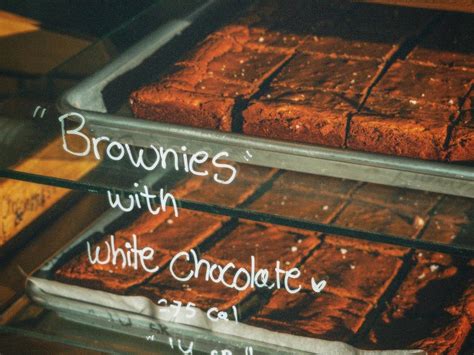 "Brownies"
with
white Chocolate ♥
275 Cal